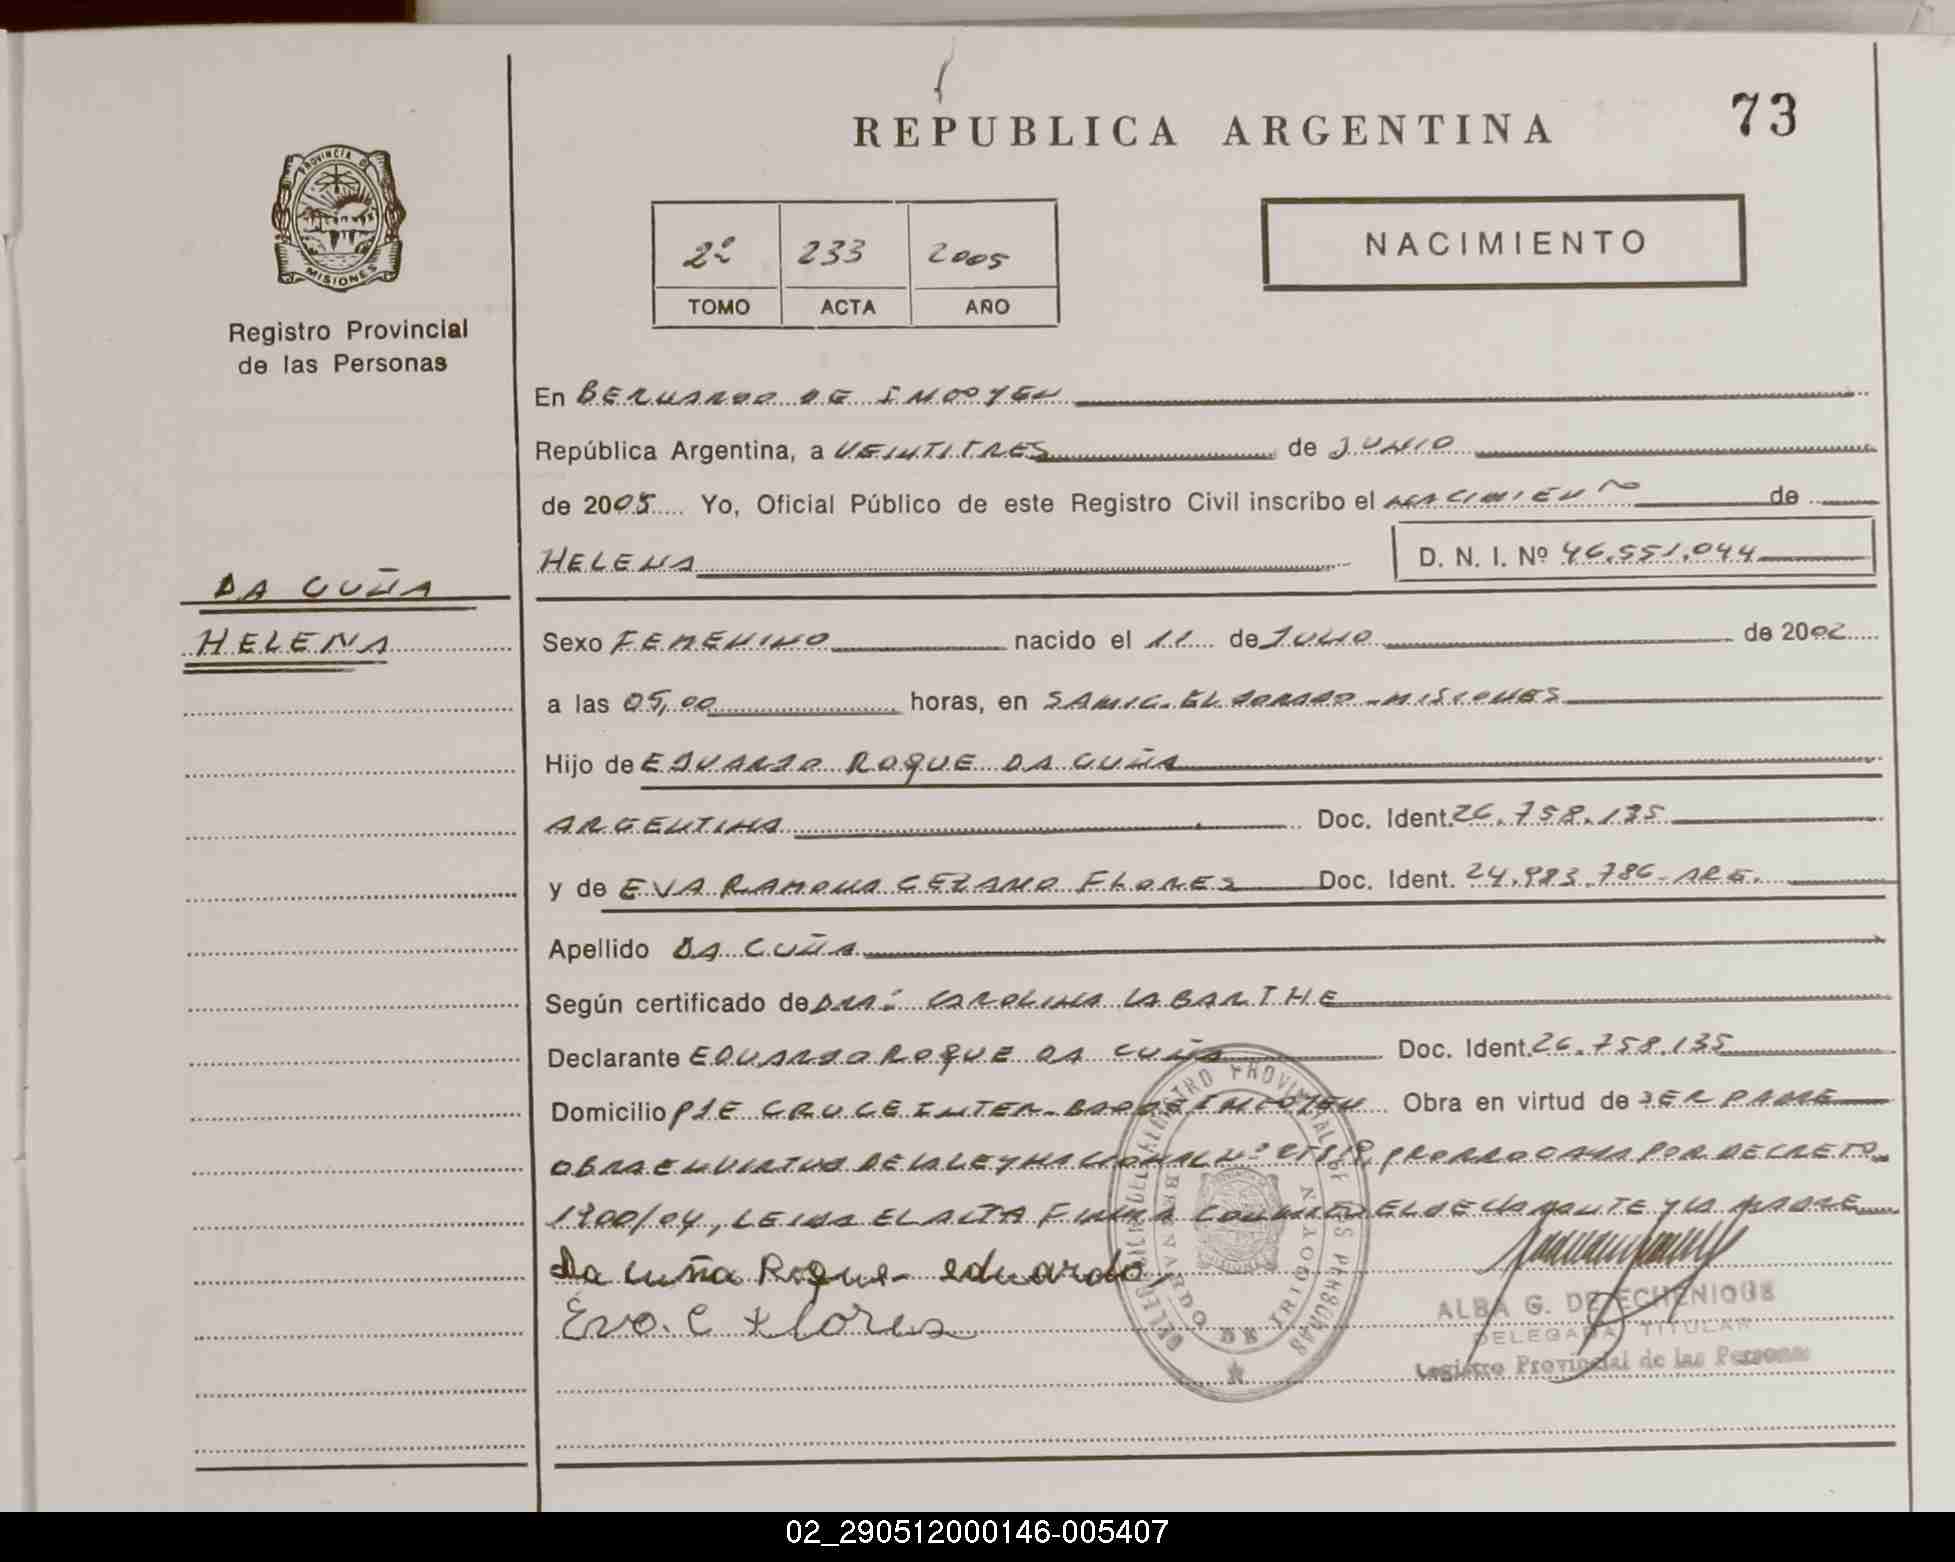 REPUBLICA ARGENTINA
73
PROVINCIA DE
MISIONES
Registro Provincial
de las Personas
2º 233 2005
TOMO ACTA AÑO
NACIMIENTO
En BERNARDO DE IRIGOYEN
República Argentina, a VEINTITRES de JUNIO
de 2005 Yo, Oficial Público de este Registro Civil inscribo el NACIMIENTO de
HELENA D. N. I. Nº 46.551.044
DA CUÑA
HELENA
Sexo FEMENINO nacido el 11 de JULIO de 2002
a las 05,00 horas, en SAMIC. ELDORADO - MISIONES
Hijo de EDUARDO ROQUE DA CUÑA
ARGENTINA Doc. Ident. 26.758.135
y de EVA RAMONA CEZARO FLORES Doc. Ident. 24.983.786 - ARG.
Apellido DA CUÑA
Según certificado de DRA: CAROLINA LABARTHE
Declarante EDUARDO ROQUE DA CUÑA Doc. Ident. 26.758.135
Domicilio PJE CRUCE INTER. BDO DE IRIGOYEN Obra en virtud de SER PADRE
OBRA EN VIRTUD DE LA LEY NACIONAL Nº PRORROGADA POR DECRETO
1900/04, LEIDA EL ACTA FIRMA CONMIGO EL DECLARANTE Y LA MADRE
Da cuña Roque eduardo
Eva. C Flores
DELEGACION DEL REGISTRO PROVINCIAL DE LAS PERSONAS
BERNARDO DE IRIGOYEN
ALBA G. DE ECHENIQUE
DELEGADA TITULAR
Registro Provincial de las Personas
02_290512000146-005407